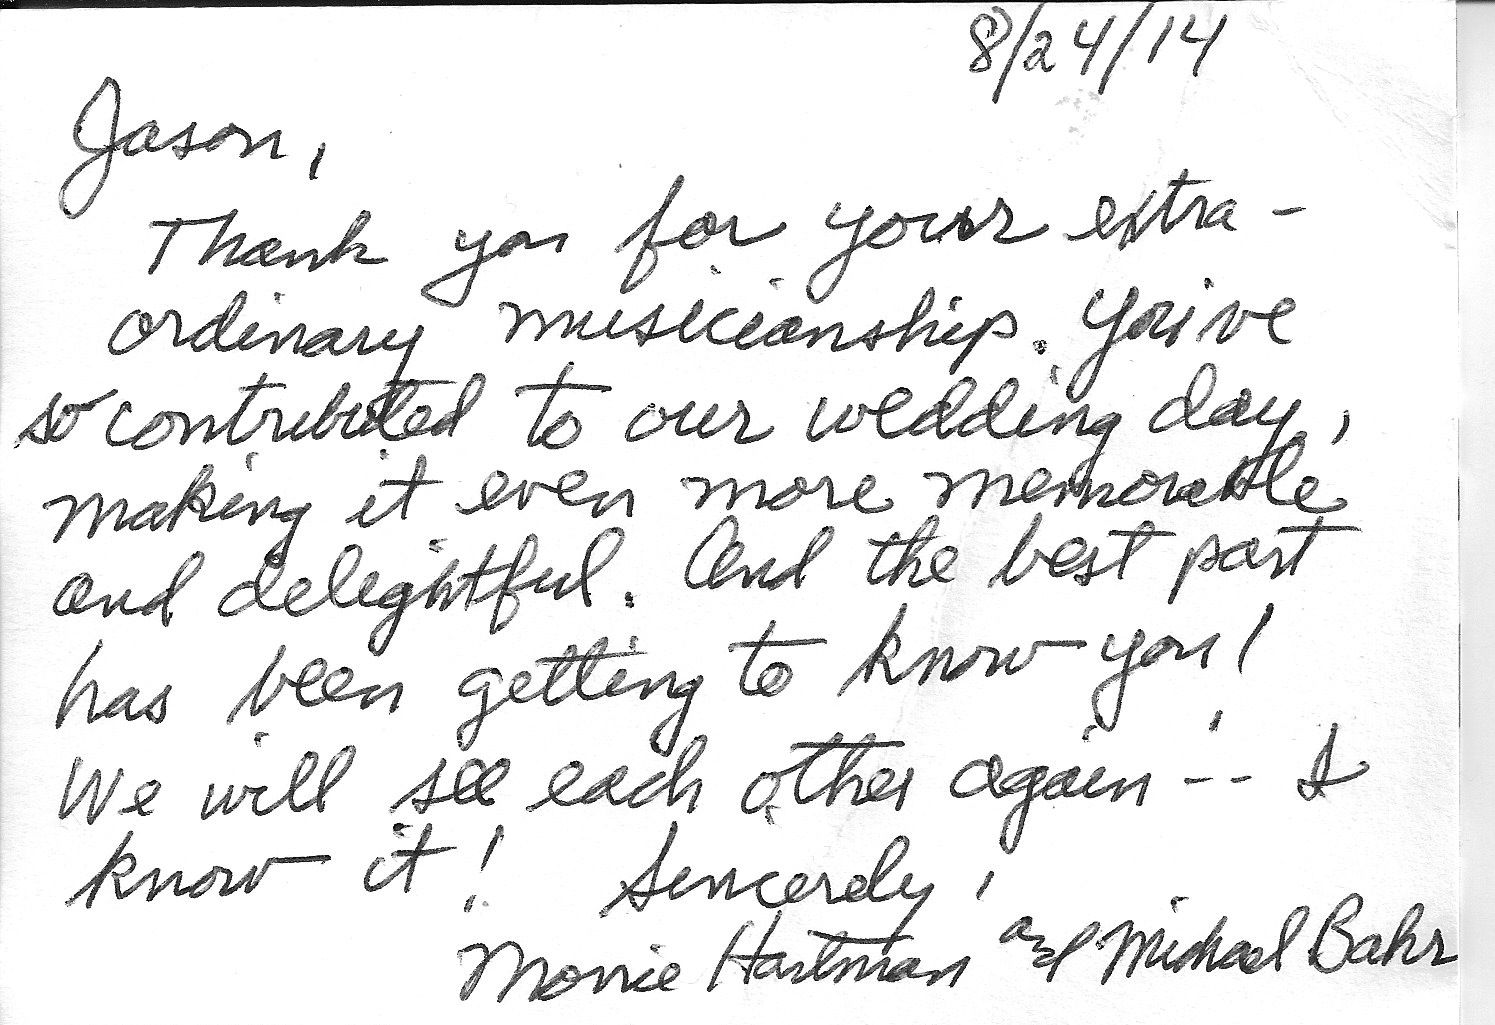 8/24/14
Jason,
Thank you for your extra-
ordinary musicianship. You've
so contributed to our wedding day,
making it even more memorable
and delightful. And the best part
has been getting to know you!
We will see each other again -- I
know it! Sincerely,
Monie Hartman and Michael Bahr